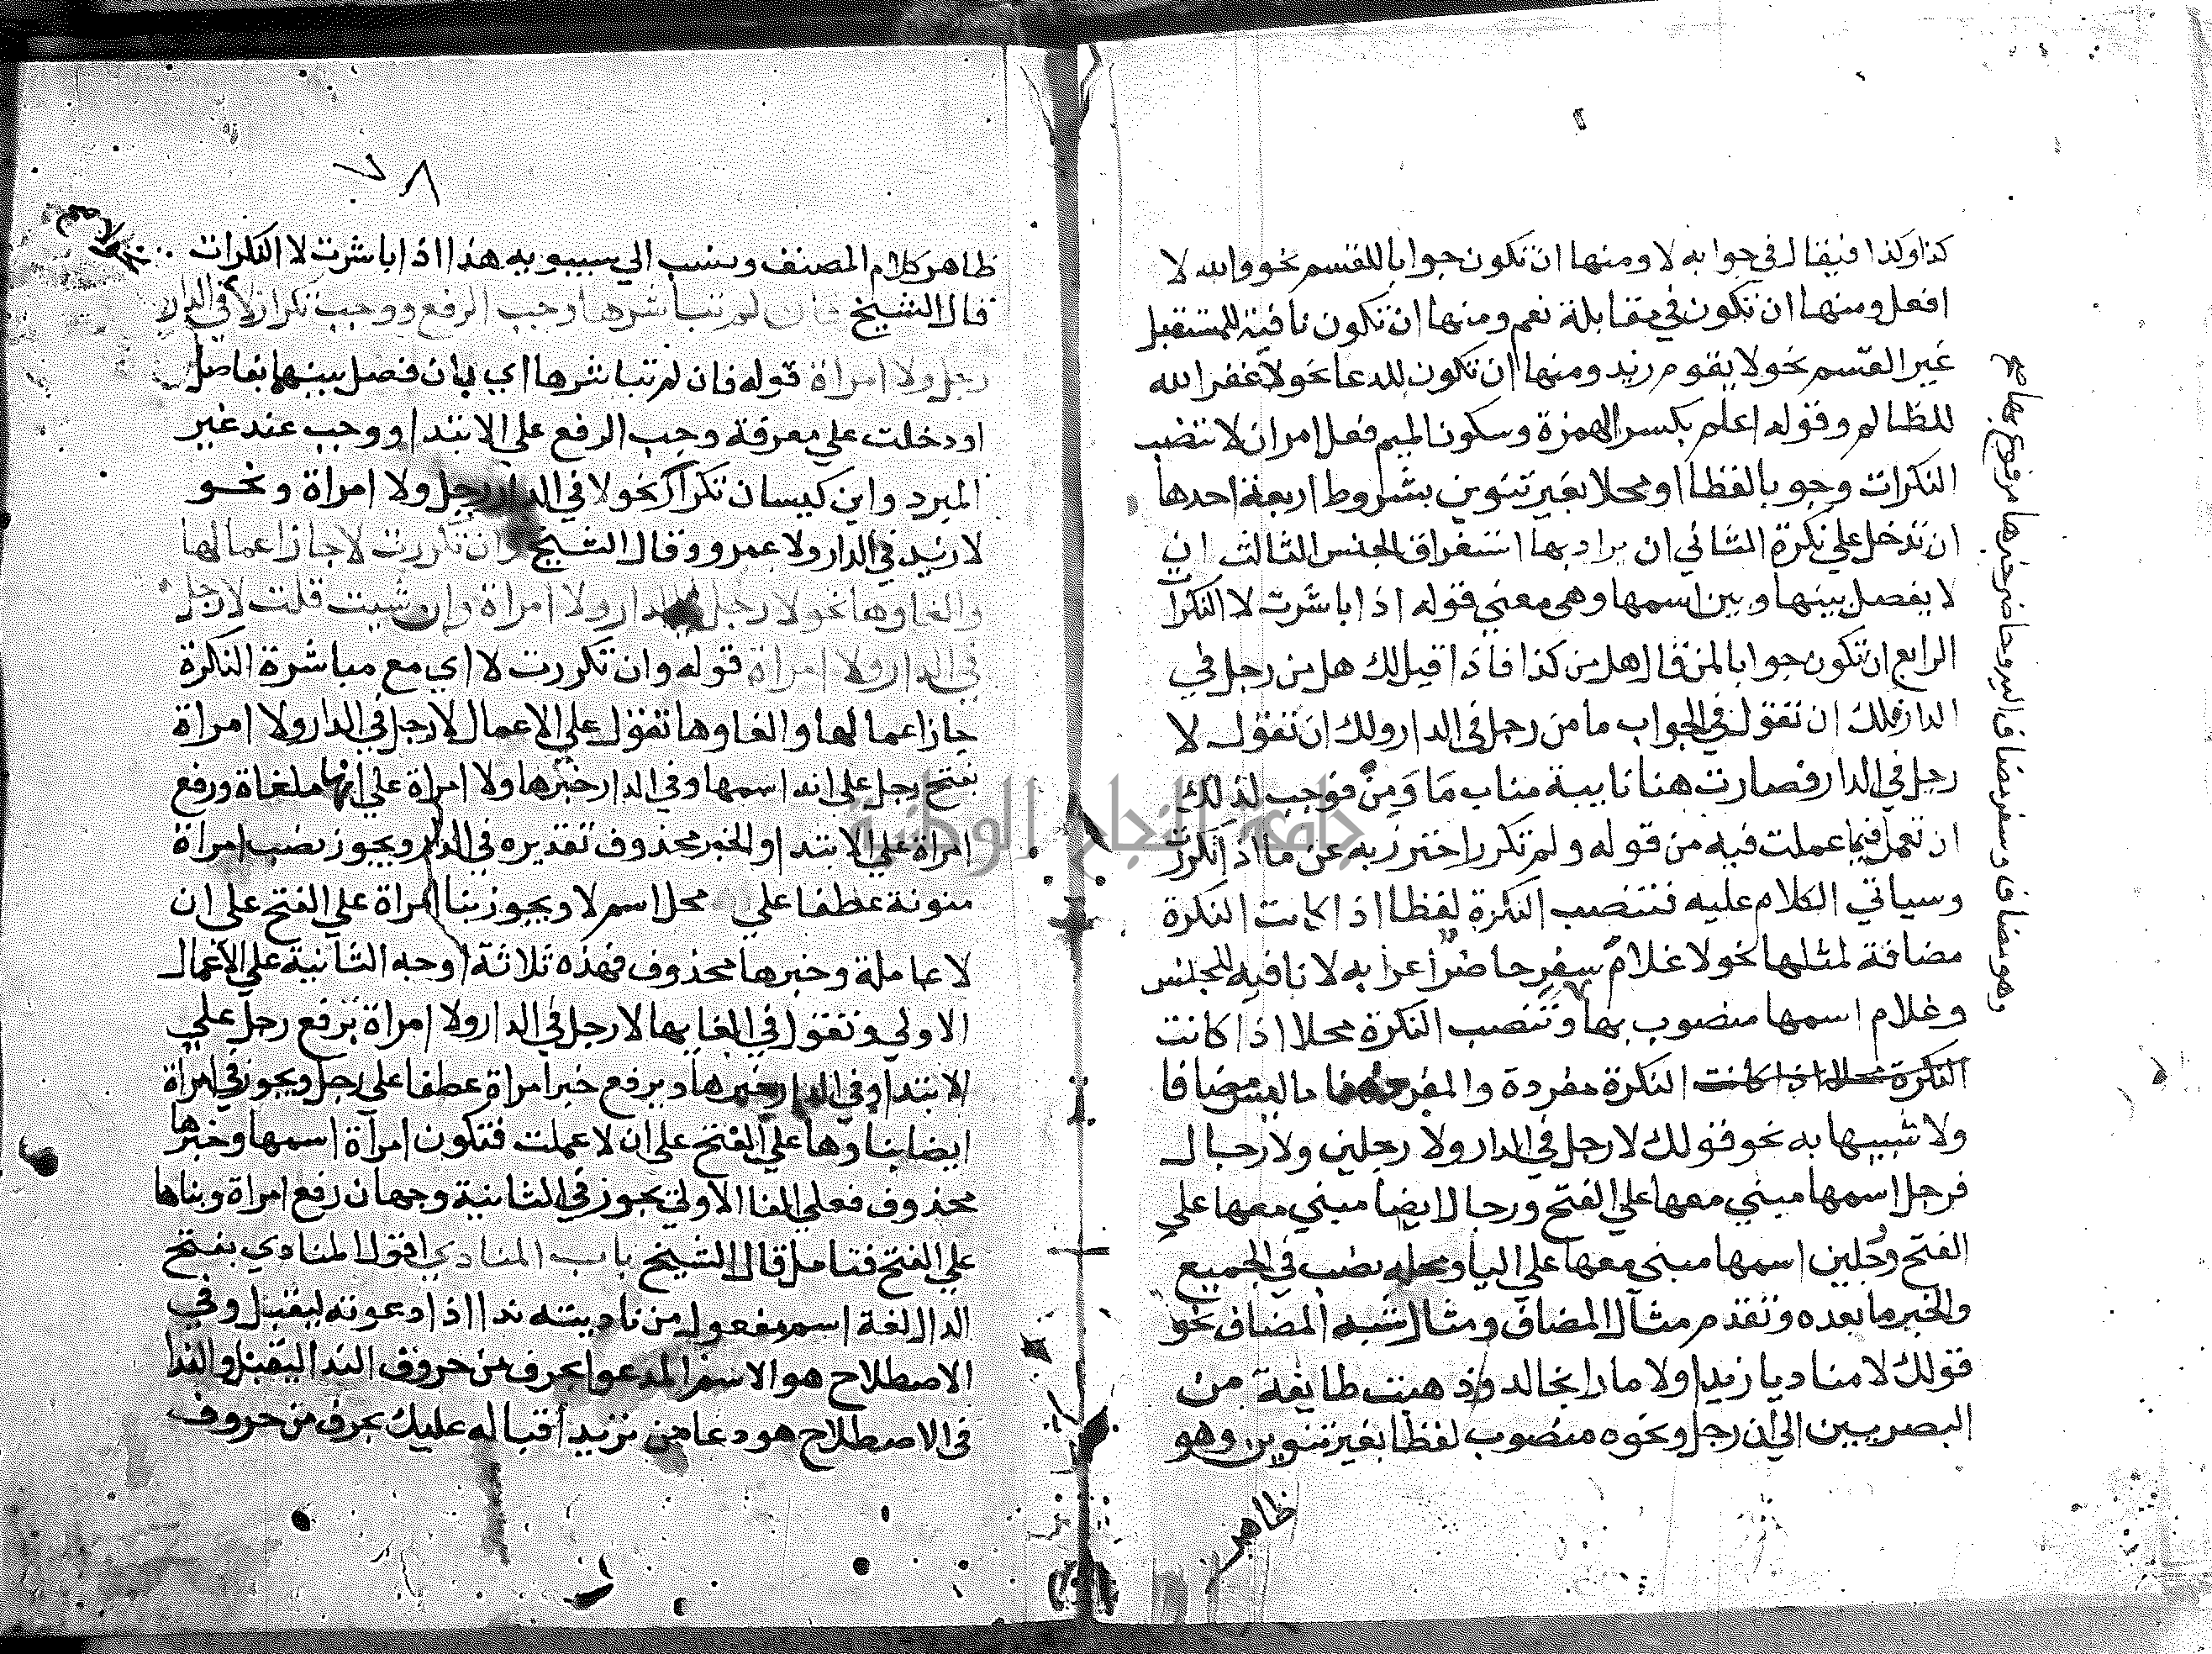 كذا وكذا فيقال في جوابه لا ومنها ان تكون جوابا للقسم نحو والله لا
افعل ومنها ان تكون في مقابلة نعم ومنها ان تكون نافية للمستقبل
غير القسم نحو لا يقوم زيد ومنها ان تكون للدعا نحو لا غفر الله
للظالم وقوله اعلم بكسر الهمزة وسكون الميم فعل امر ان لا تنصب
النكرات وجوبا لفظا او محلا بغير تنوين بشروط اربعة احدها
ان تدخل علي نكرة الثاني ان يراد بها استغراق الجنس الثالث ان
لا يفصل بينها وبين اسمها وهي معني قوله اذا باشرت لا النكرا
الرابع ان تكون جوابا لمن قال هل من كذا فاذا قيل لك هل من رجل في
الدار فلك ان تقول في الجواب ما من رجل في الدار ولك ان تقول لا
رجل في الدار فصارت هنا نايبة مناب ما ومن فوجب لذلك
ان تعمل فيما عملت فيه من قوله ولم تكرر احترز به عن ما اذا تكررت
وسياتي الكلام عليه فتنصب النكرة لفظا اذا كانت النكرة
مضافة لمثلها نحو لا غلام سفر حاضرا عرابه لا نافيه للجنس
وغلام اسمها منصوب بها وتنصب النكرة محلا اذا كانت
النكرة محلا اذا كانت النكرة مفردة والمفرد هنا ما ليس مضافا
ولا شبيها به نحو قولك لا رجل في الدار ولا رجلين ولا رجال
فرجل اسمها مبني معها علي الفتح ورجال ايضا مبني معها علي
الفتح ورجلين اسمها مبني معها علي اليا ومحله نصب في الجميع
والخبر ما بعده وتقدم مثال المضاف ومثال شبه المضاف نحو
قولك لا مناديا زيدا ولا مارا بخالد وذهبت طايفة من
البصريين الي ان رجل ونحوه منصوب لفظا بغير تنوين وهو
ظاهر
وهو مضاف وسفر مضاف اليه وحاضر خبرها مرفوع بها صح
٧٨
ظاهر كلام المصنف وينسب الي سيبويه هذا اذا باشرت لا النكرات
قال الشيخ فان لم تباشرها وجب الرفع ووجب تكرار لا في الدار
رجل ولا امراة قوله فان لم تباشرها اي بان فصل بينهما بفاصل
او دخلت علي معرفة وجب الرفع علي الابتدا ووجب عند غير
المبرد وابن كيسان تكرار نحو لا في الدار رجل ولا امراة ونحو
لا زيد في الدار ولا عمرو وقال الشيخ وان تكررت لا جاز اعمالها
والغاوها نحو لا رجل في الدار ولا امراة وان شيت قلت لا رجل
في الدار ولا امراة قوله وان تكررت لا اي مع مباشرة النكرة
جاز اعمالها والغاوها تقول علي الاعمال لا رجل في الدار ولا امراة
بفتح رجل علي انه اسمها وفي الدار خبرها ولا امراة علي انها ملغاة ورفع
امراة علي الابتدا والخبر محذوف تقديره في الدار ويجوز نصب امراة
منونة عطفا علي محل اسم لا ويجوز بنا امراة علي الفتح علي ان
لا عاملة وخبرها محذوف فهذه ثلاثة اوجه الثانية علي الاعمال
الاولي وتقول في الغايها لا رجل في الدار ولا امراة برفع رجل علي
الابتدا وفي الدار خبرها وبرفع خبر امراة عطفا علي رجل ويجوز في امراة
ايضا بناوها علي الفتح علي ان لا عملت فتكون امراة اسمها وخبرها
محذوف فعلي الغا الاولي يجوز في الثانية وجهان رفع امراة وبناها
علي الفتح فتامل قال الشيخ باب المنادي اقول المنادي بفتح
الدال لغة اسم مفعول من ناديته ندا اذا دعوته ليقبل وفي
الاصطلاح هو الاسم المدعو بحرف من حروف الندا ليقبل والندا
في الاصطلاح هو دعا من تريد اقباله عليك بحرف من حروف
جامعة النجاح الوطنية